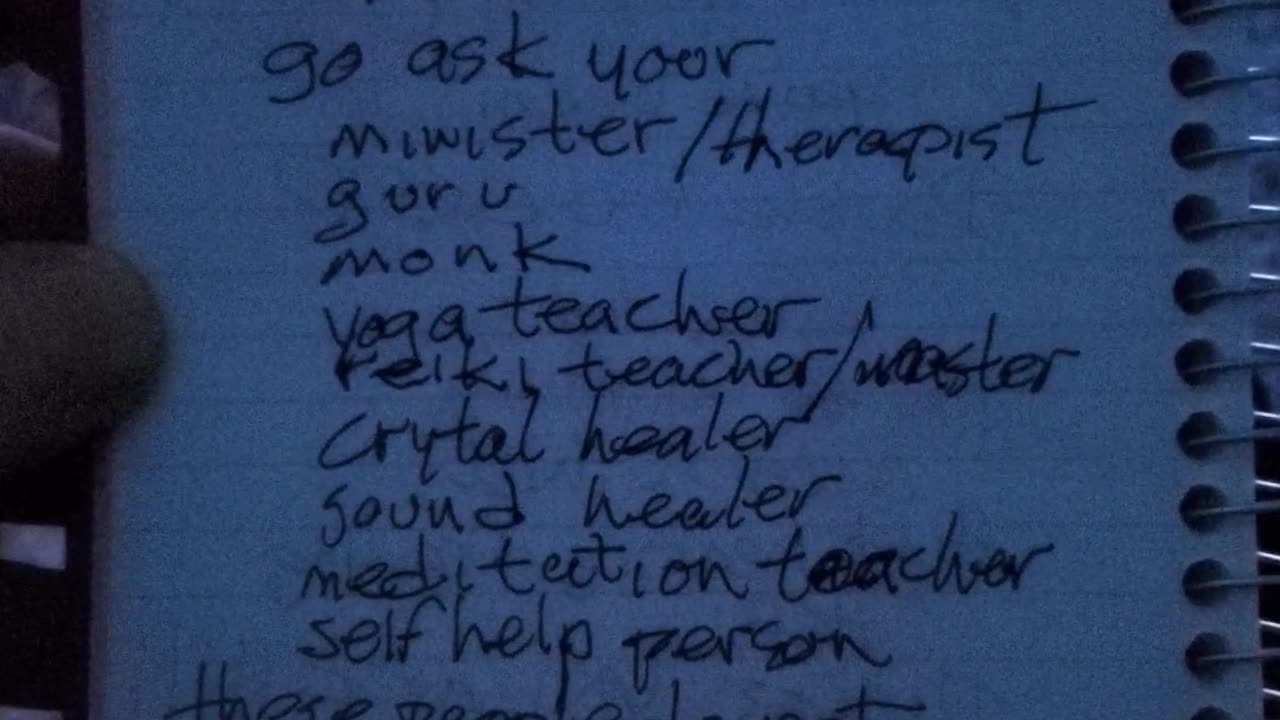 go ask your
minister/therapist
guru
monk
yoga teacher
reiki teacher/master
crytal healer
sound healer
meditation teacher
self help person
these people